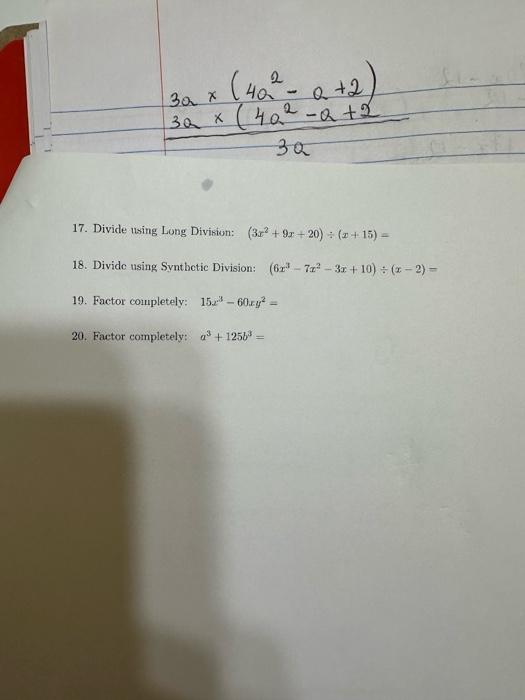 3a × (4a² - a +2)
3a × (4a² -a +2
3a
17. Divide using Long Division: (3x² + 9x + 20) ÷ (x + 15) =
18. Divide using Synthetic Division: (6x³ − 7x² − 3x + 10) ÷ (x − 2) =
19. Factor completely: 15x³ − 60xy² =
20. Factor completely: a³ + 125b³ =